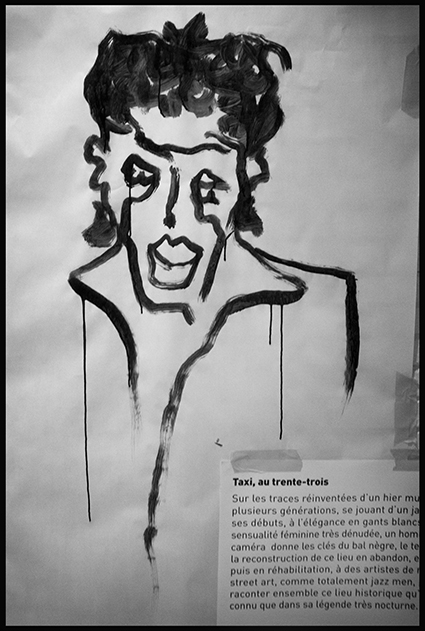 Taxi, au trente-trois
Sur les traces réinventées d'un hier mu
plusieurs générations, se jouant d'un ja
ses débuts, à l'élégance en gants blancs
sensualité féminine très dénudée, un hom
caméra donne les clés du bal nègre, le te
la reconstruction de ce lieu en abandon, e
puis en réhabilitation, à des artistes de
street art, comme totalement jazz men,
raconter ensemble ce lieu historique qu'
connu que dans sa légende très nocturne.